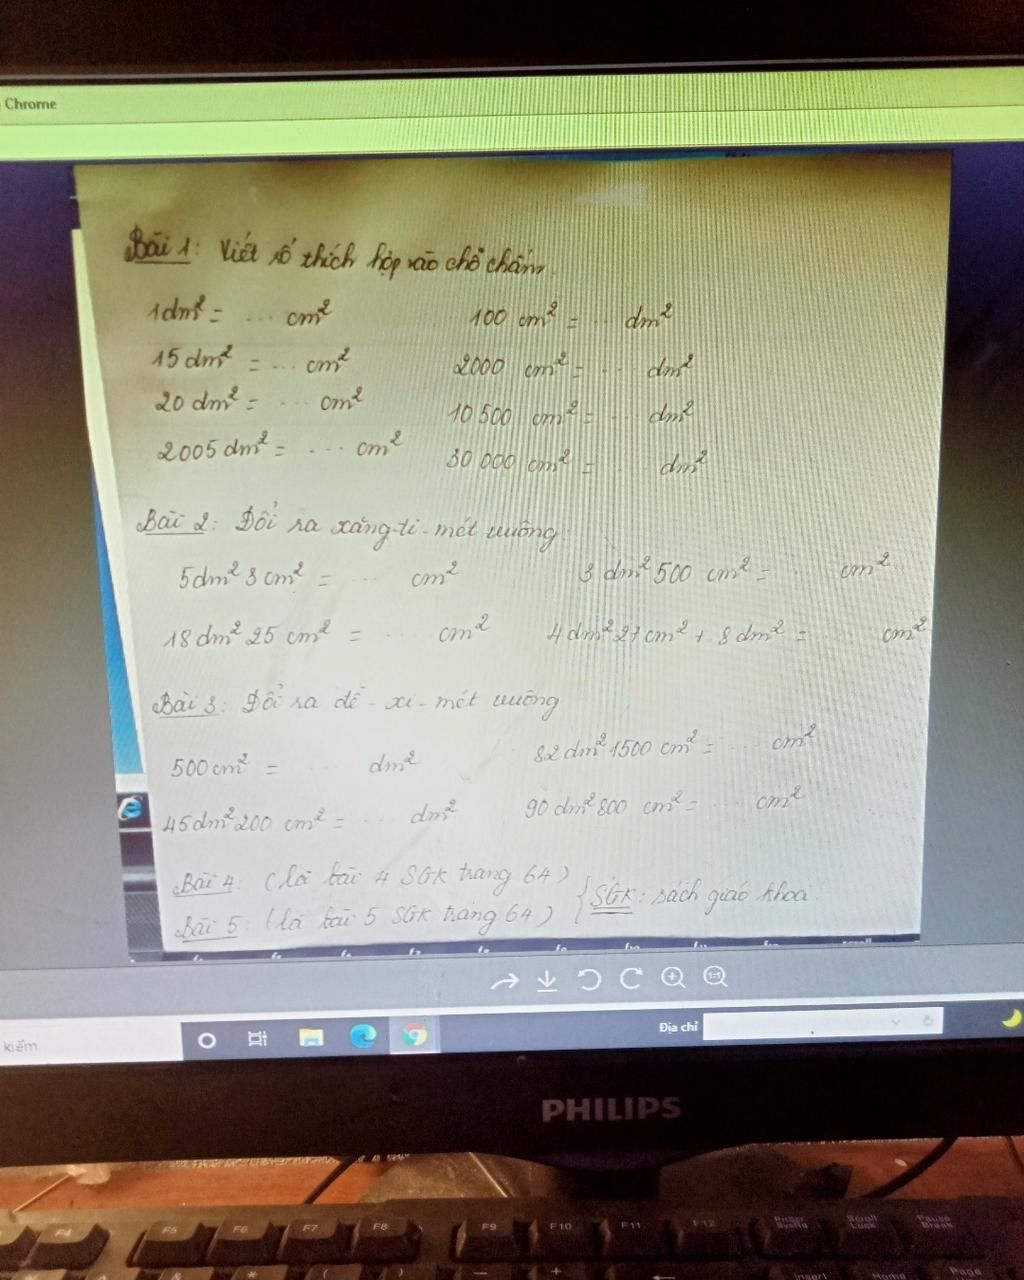 Chrome
Bài 1: Viết số thích hợp vào chỗ chấm.
1dm² = ... cm² 100 cm² = ... dm²
15 dm² = ... cm² 2000 cm² = ... dm²
20 dm² = ... cm² 10 500 cm² = ... dm²
2005 dm² = ... cm² 30 000 cm² = ... dm²
Bài 2: Đổi ra xăng-ti-mét vuông
5dm² 3 cm² = ... cm² 3 dm² 500 cm² = ... cm²
18 dm² 25 cm² = ... cm² 4 dm² 27 cm² + 8 dm² = cm²
Bài 3: Đổi ra đề-xi-mét vuông
500 cm² = ... dm² 32 dm² 1500 cm² = ... cm²
45 dm² 200 cm² = ... dm² 90 dm² 800 cm² = ... cm²
Bài 4: (là bài 4 SGK trang 64) { SGK: sách giáo khoa
Bài 5: (là bài 5 SGK trang 64)
kiếm
Địa chỉ
PHILIPS
F4 F5 F6 F7 F8 F9 F10 F11 F12 Scroll Lock Pause Break
Insert Home Page